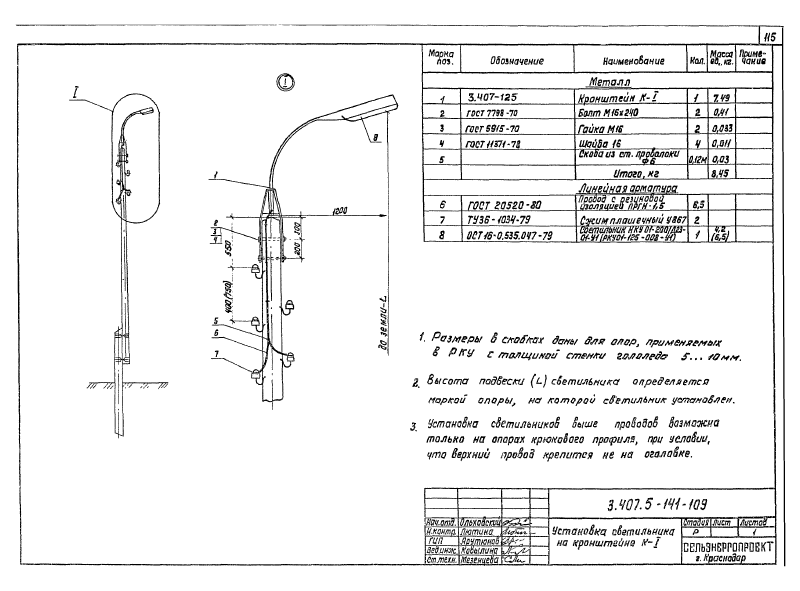 115
Марка поз. Обозначение Наименование Кол. Масса ед., кг. Приме-чание
Металл
1 3.407-125 Кронштейн К-I 1 7,49
2 ГОСТ 7798-70 Болт М16х240 2 0,41
3 ГОСТ 5915-70 Гайка М16 2 0,033
4 ГОСТ 11371-78 Шайба 16 4 0,011
5 Скоба из ст. проволоки Ф6 0,12м 0,03
Итого, кг 8,45
Линейная арматура
6 ГОСТ 20520-80 Провод с резиновой изоляцией ПРГН-1,5 6,5
7 ТУ36-1034-79 Сжим плашечный У867 2
8 ОСТ 16-0.535.047-79 Светильник 1 4,2 (6,5)
I
I
8
1
1200
2
3
4
200
200
550
400(750)
до земли-L
5
6
7
1. Размеры в скобках даны для опор, применяемых
в РКУ с толщиной стенки гололеда 5...10мм.
2. Высота подвески (L) светильника определяется
маркой опоры, на которой светильник установлен.
3. Установка светильников выше проводов возможна
только на опорах крюкового профиля, при условии,
что верхний провод крепится не на оголовке.
3.407.5-141-109
Нач.отд. Ольховский
Н.контр. Лютина
ГИП Арутюнов
Вед.инж. Ковылина
Ст.техн. Мезенцева
Установка светильника
на кронштейне К-I
Стадия Лист Листов
Р 1
СЕЛЬЭНЕРГОПРОЕКТ
г. Краснодар